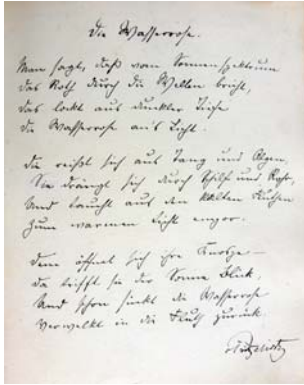 Die Wasserrose.
Man sagt, daß vom Sonnenspektrum
das Roth durch die Wellen bricht,
das lockt aus dunkler Tiefe
die Wasserrose an's Licht.
Sie reißt sich aus Tang und Algen,
Sie drängt sich durch Schilf und Rohr,
Und taucht aus den kalten Fluthen
Zum warmen Licht empor.
Dem öffnet sich ihre Knospe —
da trifft sie der Sonne Blick,
Und schon sinkt die Wasserrose
Verwelkt in die Fluth zurück.